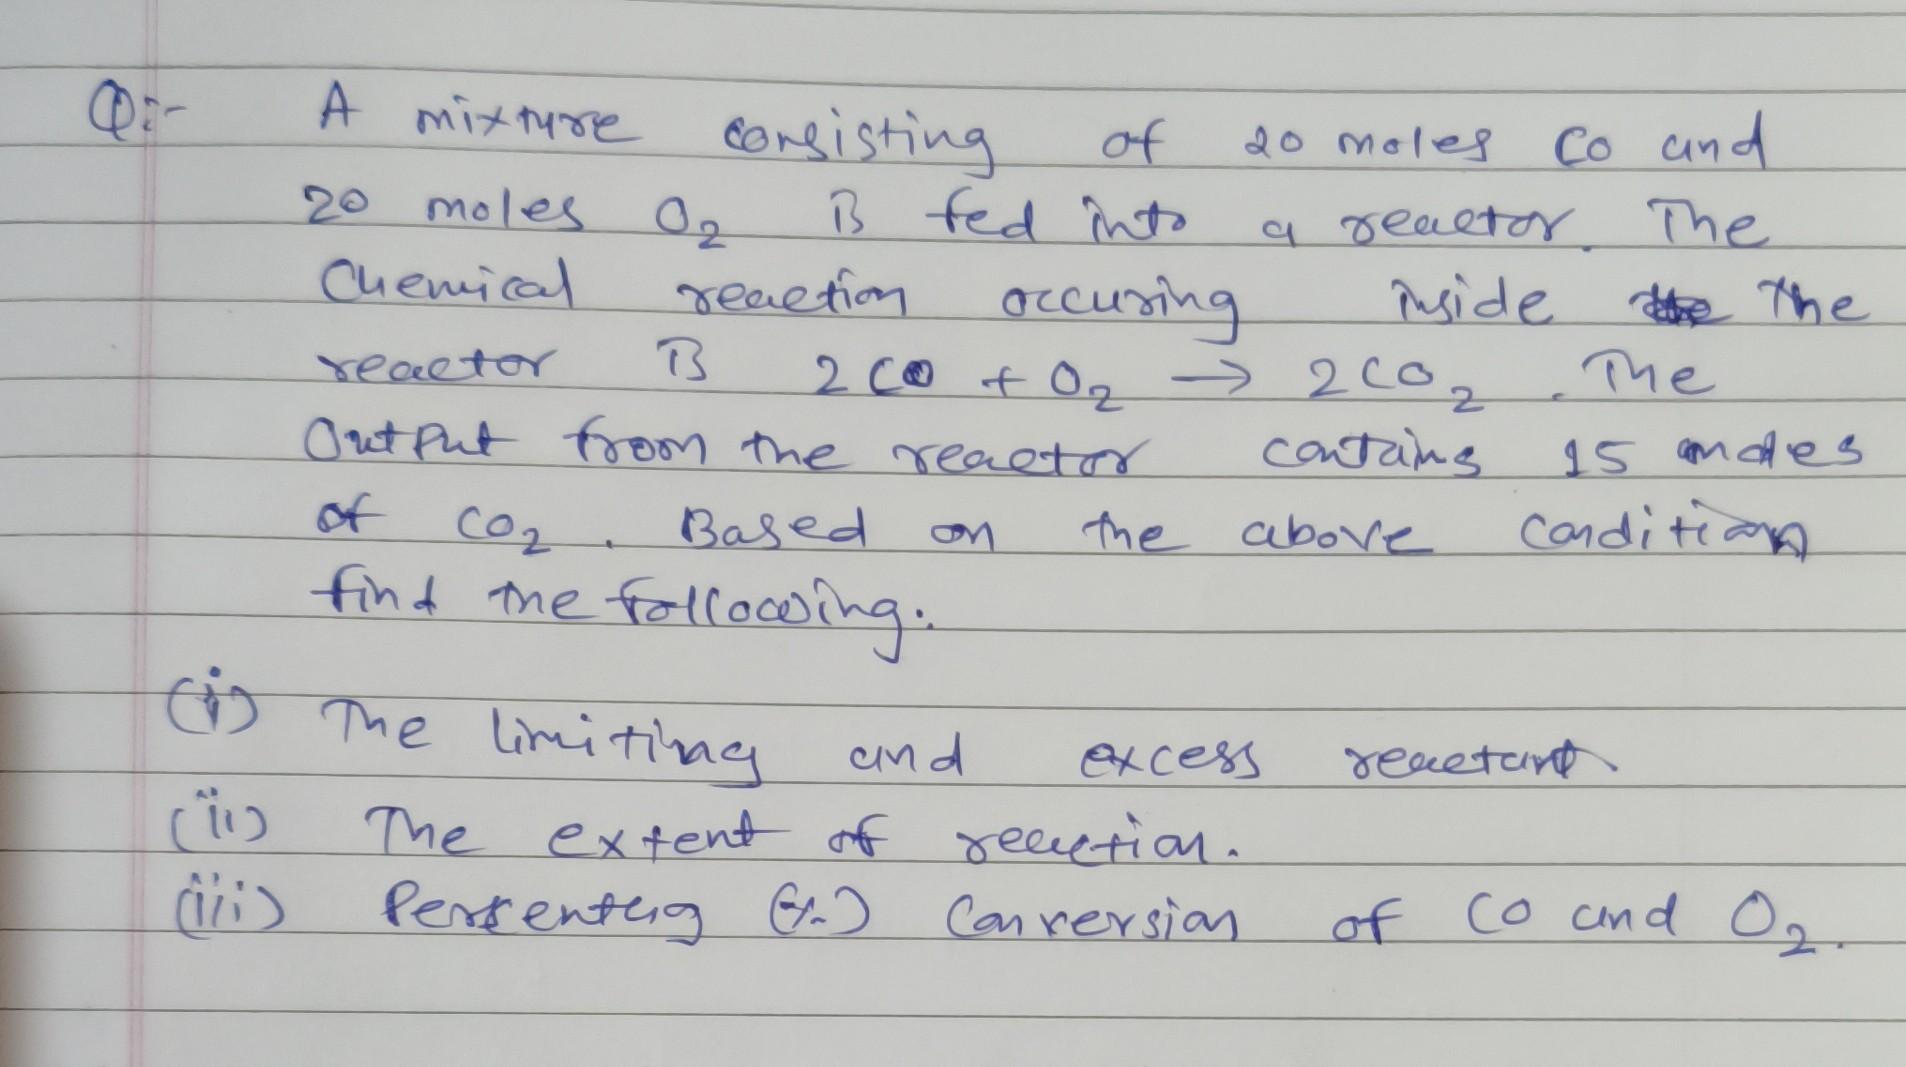 Q:- A mixture consisting of 20 moles CO and
20 moles O2 is fed into a reactor. The
Chemical reaction occuring inside the The
reactor is 2CO + O2 → 2CO2. The
Output from the reactor contains 15 moles
of CO2. Based on the above condition
find the following.
(i) The limiting and excess reactant.
(ii) The extent of reaction.
(iii) Persenteg (%) Conversion of CO and O2.